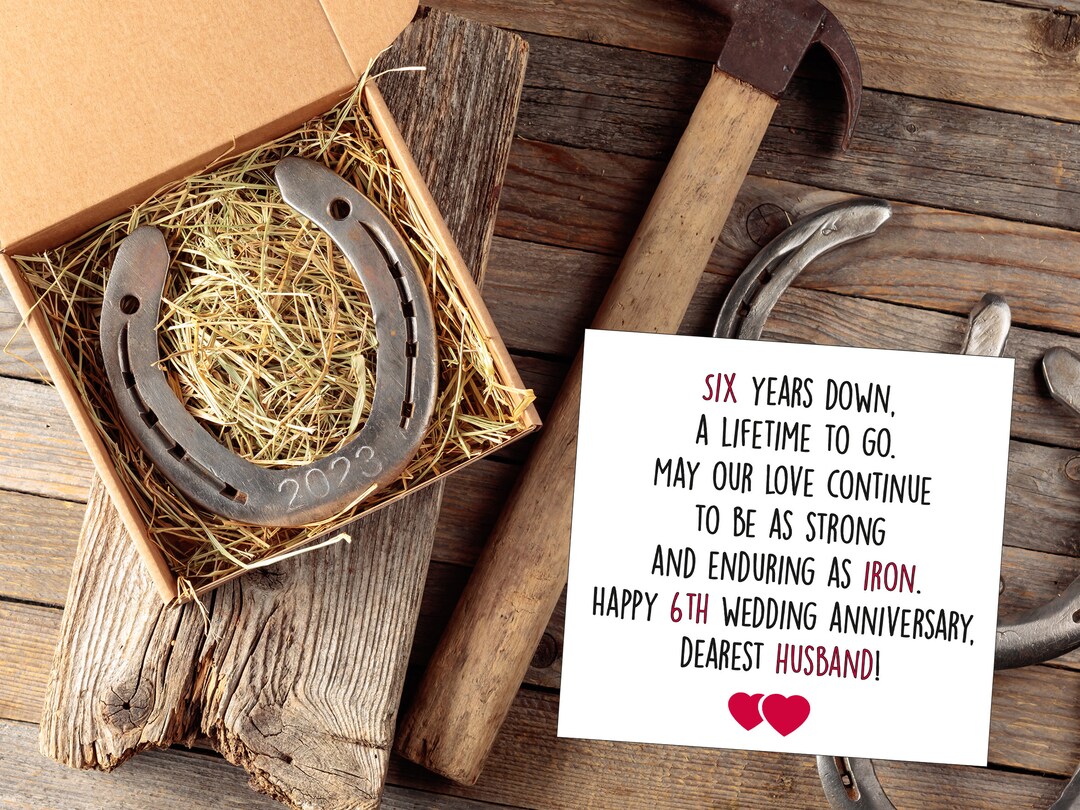 2023
SIX YEARS DOWN,
A LIFETIME TO GO.
MAY OUR LOVE CONTINUE
TO BE AS STRONG
AND ENDURING AS IRON.
HAPPY 6TH WEDDING ANNIVERSARY,
DEAREST HUSBAND!